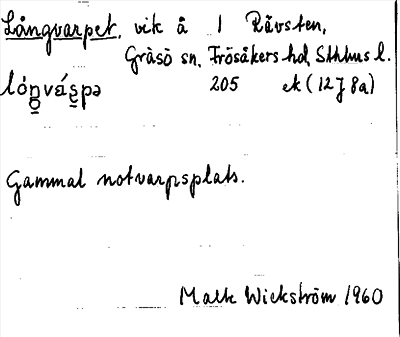 Långvarpet, vik å 1 Rävsten,
Gräsö sn, Frösåkers hd, Sthlms l.
lóŋvás̬pə 205 ek (12 J 8a)
Gammal notvarpsplats.
Wickström 1960